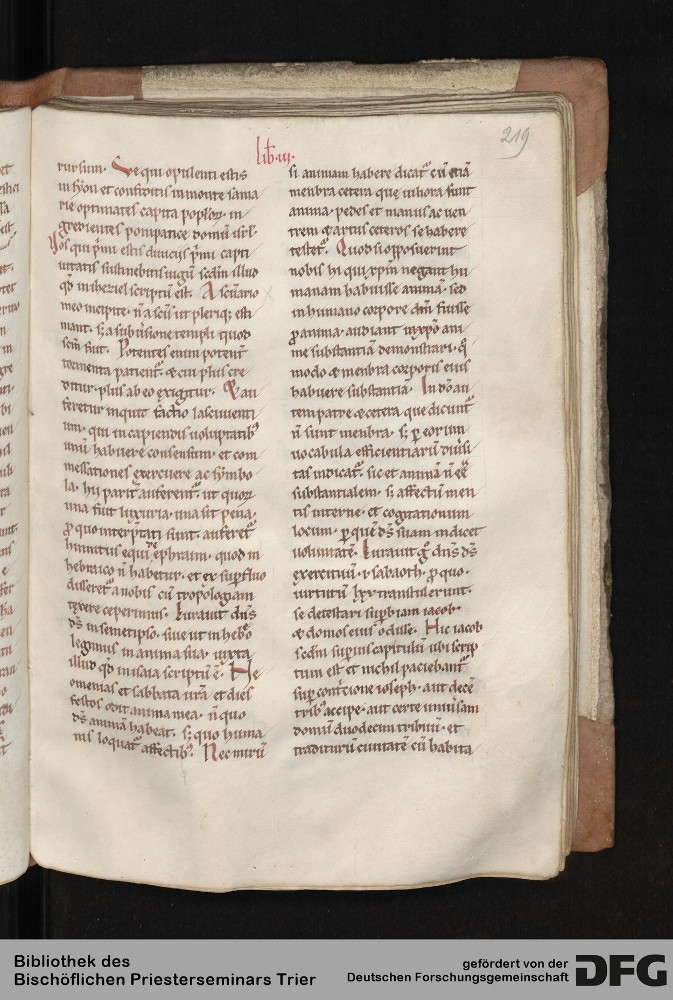 219
lib. iii.
rursum. Ve qui opulenti estis
in syon et confiditis in monte sama
rie optimates capita poploꝝ. in
gredientes pompatice domũ isrl.
Vos qui p̃mi estis diuiciis p̃mi capti
uitatis sustinebitis iugũ. scd̃m illud
qđ in heziel scriptũ est. A sc̃uario
meo incipite. ñ a sc̃is ut pleriq; esti
mant. sꝫ a subũsione templi quod
sc̃m fuit. Potentes enim potent̃
tormenta patient̃. & cui plus cre
ditur. plus ab eo exigitur. & au
feretur inquit factio lasciuienti
um. qui in capiendis uoluptatib;
unũ habuere consensum. et com
messationes exercuere ac symbo
la. hii parit̃ auferent̃. ut quoꝝ
una fuit luxuria. una sit pena.
ꝓ quo interp̃tati sunt. auferet̃
hinnitus equiᵣₑ ephraim. quod in
hebraico ñ habetur. et ex sup̃fluo
disseret̃ a nobis cũ tropologiam
texere ceperimus. Iurauit dñs
ds̃ in semetipso. siue ut in heb̃o
legimus in anima sua. iuxta
illud qđ in isaia scriptũ ẽ. Ne
omenias et sabbata ur̃a et dies
festos odit anima mea. ñ quo
ds̃ animã habeat. sꝫ quo huma
nis loquat̃ affectib;. Nec mirũ
si animam habere dicat̃ cũ etiã
menbra cetera que in hora sunt
anima. pedes et manus ac uen
trem & artus ceteros se habere
testet̃. Quod si opposuerint
nobis hi qui xp̃m negant hu
manam habuisse animã. sed
in humano corpore dm̃ fuisse
ꝓ anima. audiant in xp̃o ani
me substantiã demonstrari. q̃
modo & menbra corporis eius
habuere substantiã. In dõ aũ
tem patre & cetera que dicunt̃
ñ sunt menbra. sꝫ p eorum
uocabula efficientiarũ diũsi
tas indicat̃. sic et animã ñ eẽ
substantialem. sꝫ affectũ men
tis interne. et cogitationum
locum. p quẽ ds̃ suam indicet
uoluntatẽ. Iurauit g̃ dñs ds̃
exercituũ. ł sabaoth. ꝓ quo.
uirtutũ lxx transtulerunt.
se detestari sup̃biam iacob.
& domos eius odisse. Hic iacob
scd̃m sup̃ius capitulũ ubi scrip
tum est et nichil paciebant̃
sup̃ cont̃cione ioseph. aut decẽ
trib; accipe. aut certe uniũsam
domũ duodecim tribuũ. et
traditurũ ciuitatẽ cũ habita
Bibliothek des
Bischöflichen Priesterseminars Trier
gefördert von der
Deutschen Forschungsgemeinschaft
DFG